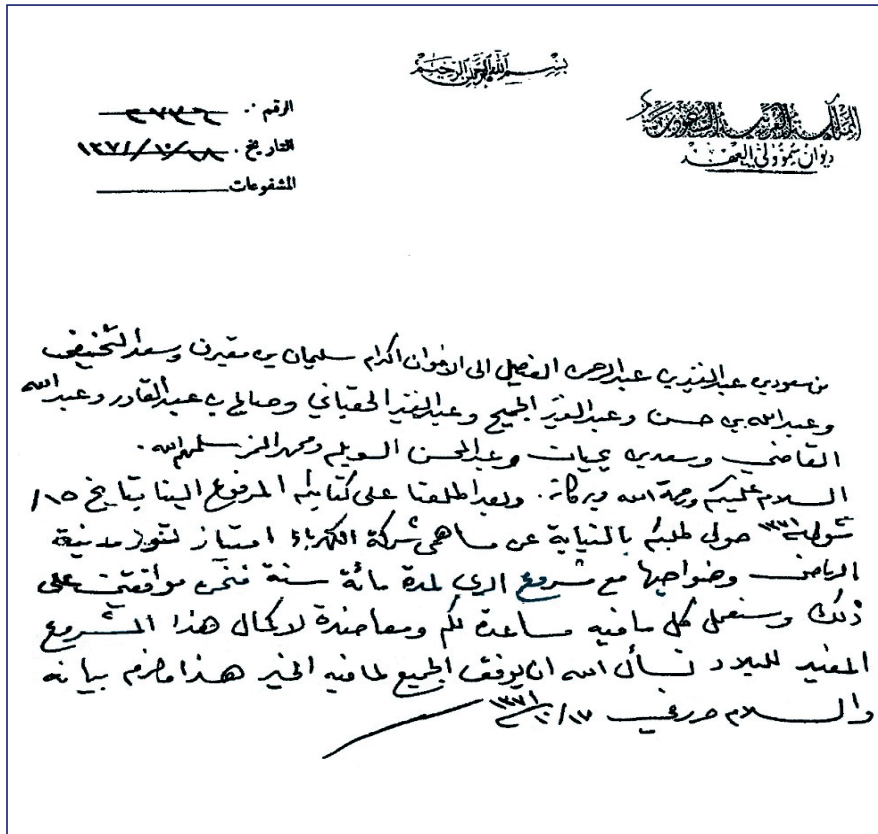 بسم الله الرحمن الرحيم
المملكة العربية السعودية
ديوان سمو ولي العهد
الرقم :
التاريخ : ١٣٧١/١٠/١٨
المشفوعات
من سعود بن عبدالعزيز بن عبدالرحمن الفيصل الى الاخوان الكرام سليمان بن مقيرن وسعد
وعبدالله بن حسن وعبدالعزيز الجميح وعبدالعزيز الحقباني وصالح بن عبدالقادر وعبدالله
القاضي وسعد بن يحيان وعبدالمحسن السويلم ومحمد سلمهم الله .
السلام عليكم ورحمة الله وبركاته . وبعد اطلعنا على كتابكم المرفوع الينا بتاريخ ١٥/
شوال سنة ١٣٧١ حول طلبكم بالنيابة عن مساهمي شركة الكهرباء امتياز لتنوير مدينة
الرياض وضواحيها مع مشروع الري لمدة مائة سنة فنحن موافقين على
ذلك وسنعمل كل مافيه مساعدة لكم ومعاضدة لاكمال هذا المشروع
المفيد للبلاد نسأل الله ان يوفق الجميع لمافيه الخير هذا مالزم بيانه
والسلام ١٣٧١/١٠/١٧